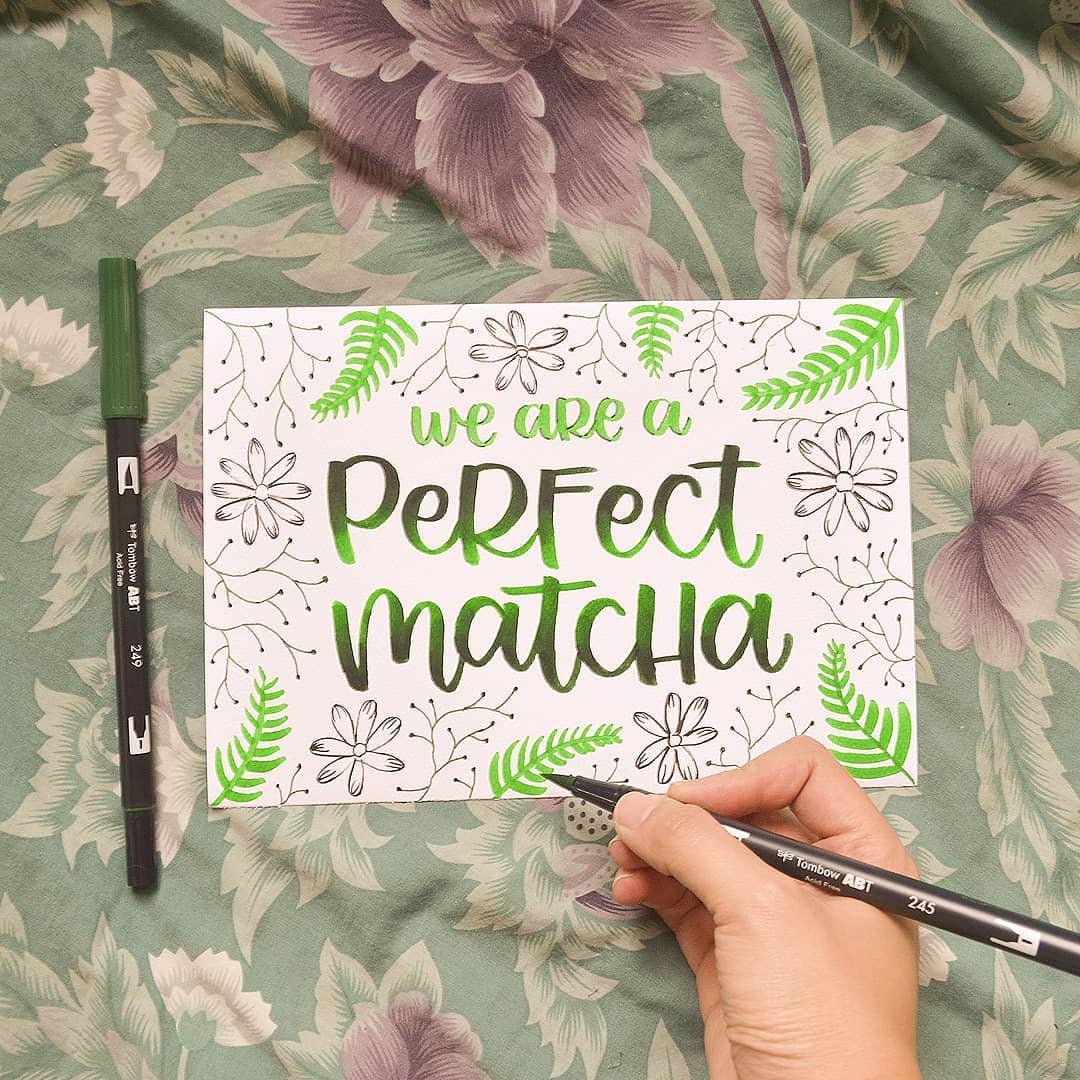 we are a
PeRFect
matcHa
Tombow ABT
Acid Free
249
Tombow ABT
Acid Free
245